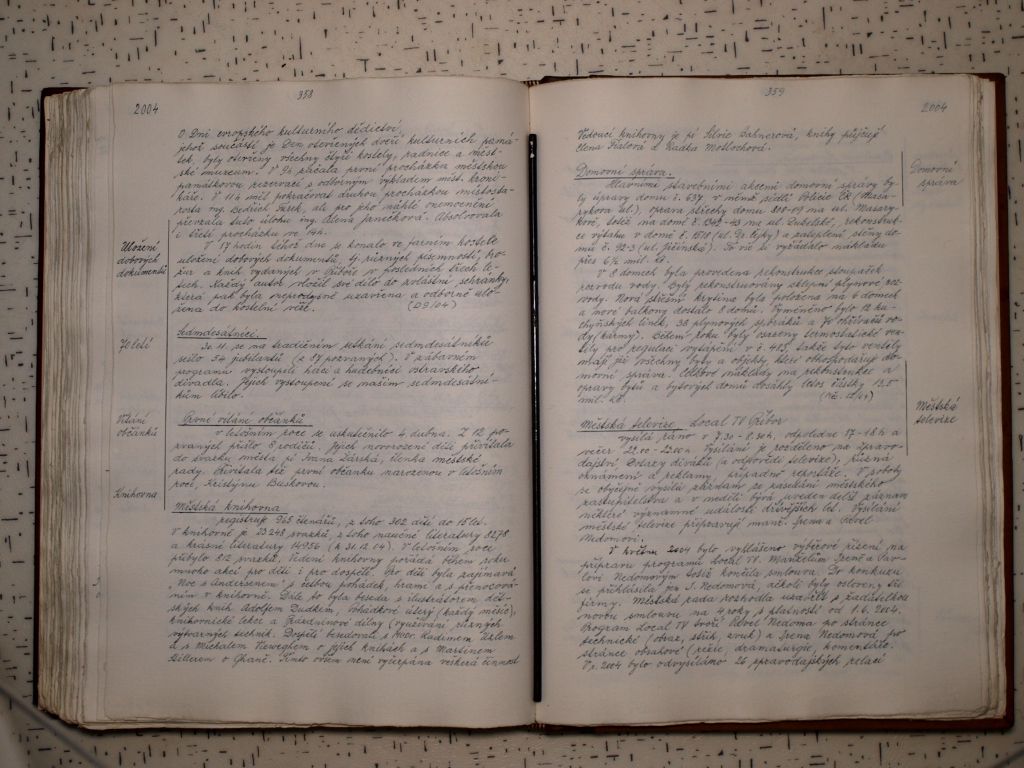 358
2004
O Dni evropského kulturního dědictví,
jehož součástí je Den otevřených dveří kulturních památek,
byly otevřeny všechny čtyři kostely, radnice a městské
muzeum. V 9h začala první procházka městskou
památkovou rezervací s odborným výkladem míst. kronikáře.
V 11h měl pokračovat druhou procházkou místostarosta
ing. Bedřich Turek, ale pro jeho náhlé onemocnění
převzala tuto úlohu ing. Alena Janečková. Absolvovala
i třetí procházku ve 14h.
Uložení
dobových
dokumentů
V 17 hodin téhož dne se konalo ve farním kostele
uložení dobových dokumentů, tj. různých písemností, brožur
a knih vydaných v Příboře v posledních třech letech.
Každý autor vložil své dílo do zvláštní schránky,
která pak byla neprodyšně uzavřena a odborně uložena
do kostelní věže. (D9/04)
Sedmdesátníci.
70letí
30.11. se na tradičním setkání sedmdesátníků
sešlo 54 jubilantů (z 87 pozvaných). V zábavném
programu vystoupili herci a hudebníci ostravského
divadla. Jejich vystoupení se našim sedmdesátníkům
líbilo.
Vítání
občánků
První vítání občánků
v letošním roce se uskutečnilo 4. dubna. Z 12 pozvaných
přišlo 8 rodičů. Jejich novorozené děti přivítala
do svazku města pí Ivana Žárská, členka městské
rady. Přivítala též první občanku narozenou v letošním
roce, Kristýnu Buskovou.
Knihovna
Městská knihovna
registruje 965 čtenářů, z toho 302 dětí do 15 let.
V knihovně je 23 248 svazků, z toho naučné literatury 8278
a krásné literatury 14956 (k 31.12.04). V letošním roce
přibylo 812 svazků. Vedení knihovny pořádá během roku
mnoho akcí pro děti i pro dospělé. Pro děti byla zajímavá
„Noc s Andersenem“ s četbou pohádek, hrami a s přenocováním
v knihovně. Dále to byla beseda s ilustrátorem dětských
knih Adolfem Dudkem, pohádkové úterý (každý měsíc),
knihovnické lekce a Prázdninové dílny (využívání různých
výtvarných technik. Dospělí besedovali s MUDr. Radimem Uzlem
a s Michalem Vieweghem o jejich knihách a s Martinem
o Ghaně. Tímto ovšem není vyčerpána veškerá činnost
359
2004
Vedoucí knihovny je pí Silvie knihy půjčují
Elena a Radka Moslochová.
Domovní
správa
Domovní správa.
Hlavními stavebními akcemi domovní správy byly
úpravy domu č. 637 v němž sídlí Policie ČR (Masarykova
ul.), oprava střechy domu 308-19 na ul. Masarykově,
totéž na domě č. 1342-43 na ul. Dukelské, rekonstrukce
výtahu v domě č. 1570 (ul. Dr. Čejky) a zateplení stěny domu
č. 92-3 (ul. Jičínská). To vše si vyžádalo nákladu
přes 6½ mil. Kč.
V 8 domech byla provedena rekonstrukce stoupaček
rozvodu vody. Byly rekonstruovány sklepní plynové rozvody.
Nová střešní krytina byla položena na 6 domech
a nové balkony dostalo 8 domů. Vyměněno bylo 12 kuchyňských
linek, 38 plynových sporáků a 70 ohřívačů vody
(karmy). Během roku byly osazeny termostatické ventily
pro regulaci vytápění v č. 415, takže tyto ventily
mají již všechny byty a objekty, které obhospodařuje domovní
správa. Celkové náklady na rekonstrukce a
opravy bytů a bytových domů dosáhly letos částky 13,5
mil. Kč. (Mě. 12/04)
Městská
televize
Městská televize Local TV Příbor
vysílá ráno v 7.30-8.30h, odpoledne 17-18h a
večer 22.00-23.00h. Vysílání je rozděleno na zpravodajství
Dotazy diváků (a odpovědi televize), různá
oznámení a reklamy, případně reportáže. V soboty
se obyčejně vysílá záznam ze zasedání městského
zastupitelstva a v neděli bývá uveden delší záznam
některé významné události dřívějších let. Vysílání
městské televize připravují manž. Irena a Pavel
Nedomovi.
V květnu 2004 bylo vyhlášeno výběrové řízení na
přípravu programů Local TV. Manželům Ireně a Pavlovi
Nedomovým totiž končila smlouva. Do konkurzu
se přihlásila jen I. Nedomová, ačkoli byly osloveny tři
firmy. Městská rada rozhodla uzavřít s ředitelkou
novou smlouvu na 4 roky s platností od 1.6.2004.
Program Local TV tvoří Pavel Nedoma po stránce
technické (obraz, střih, zvuk) a Irena Nedomová po
stránce obsahové (režie, dramaturgie, komentáře.
V r. 2004 bylo odvysíláno 26 zpravodajských relací